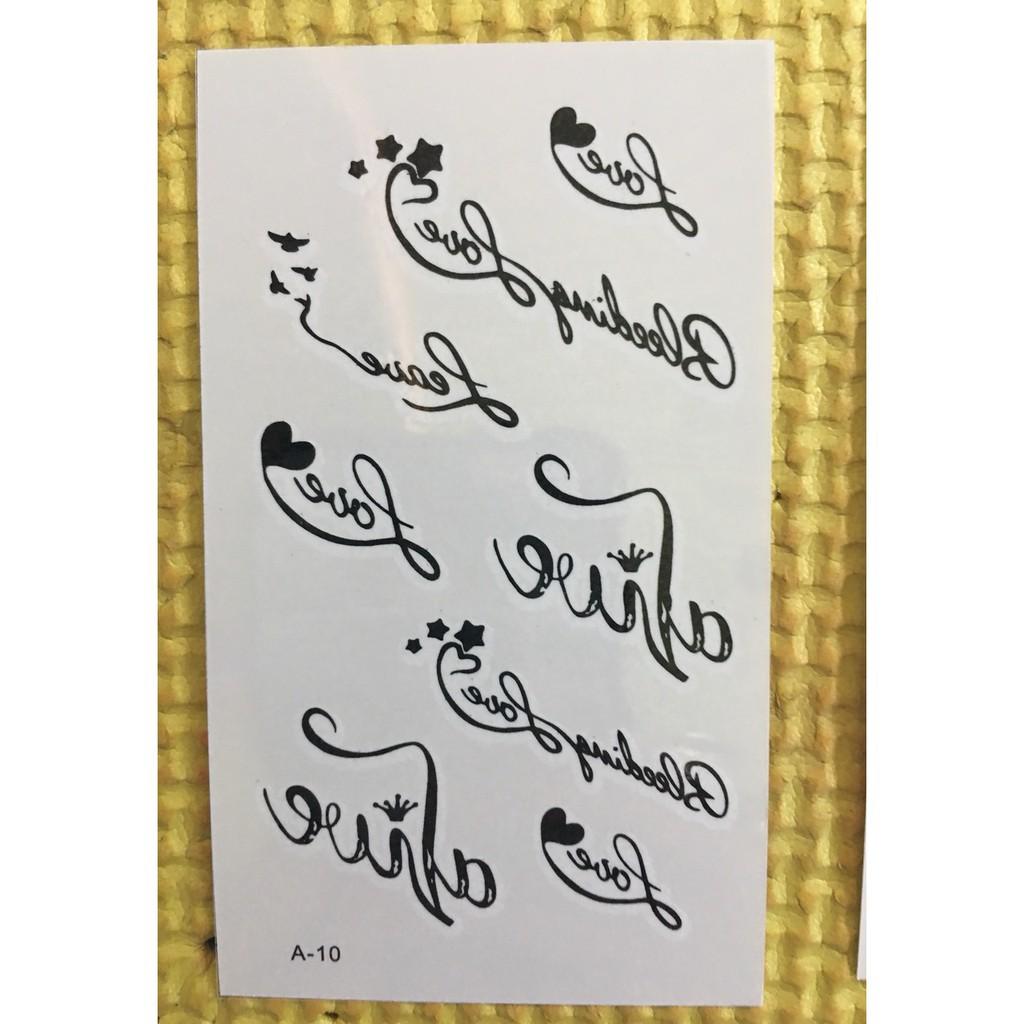 Love
Bleeding Love
Leave
Love
alive
Bleeding Love
alive
Love
A-10